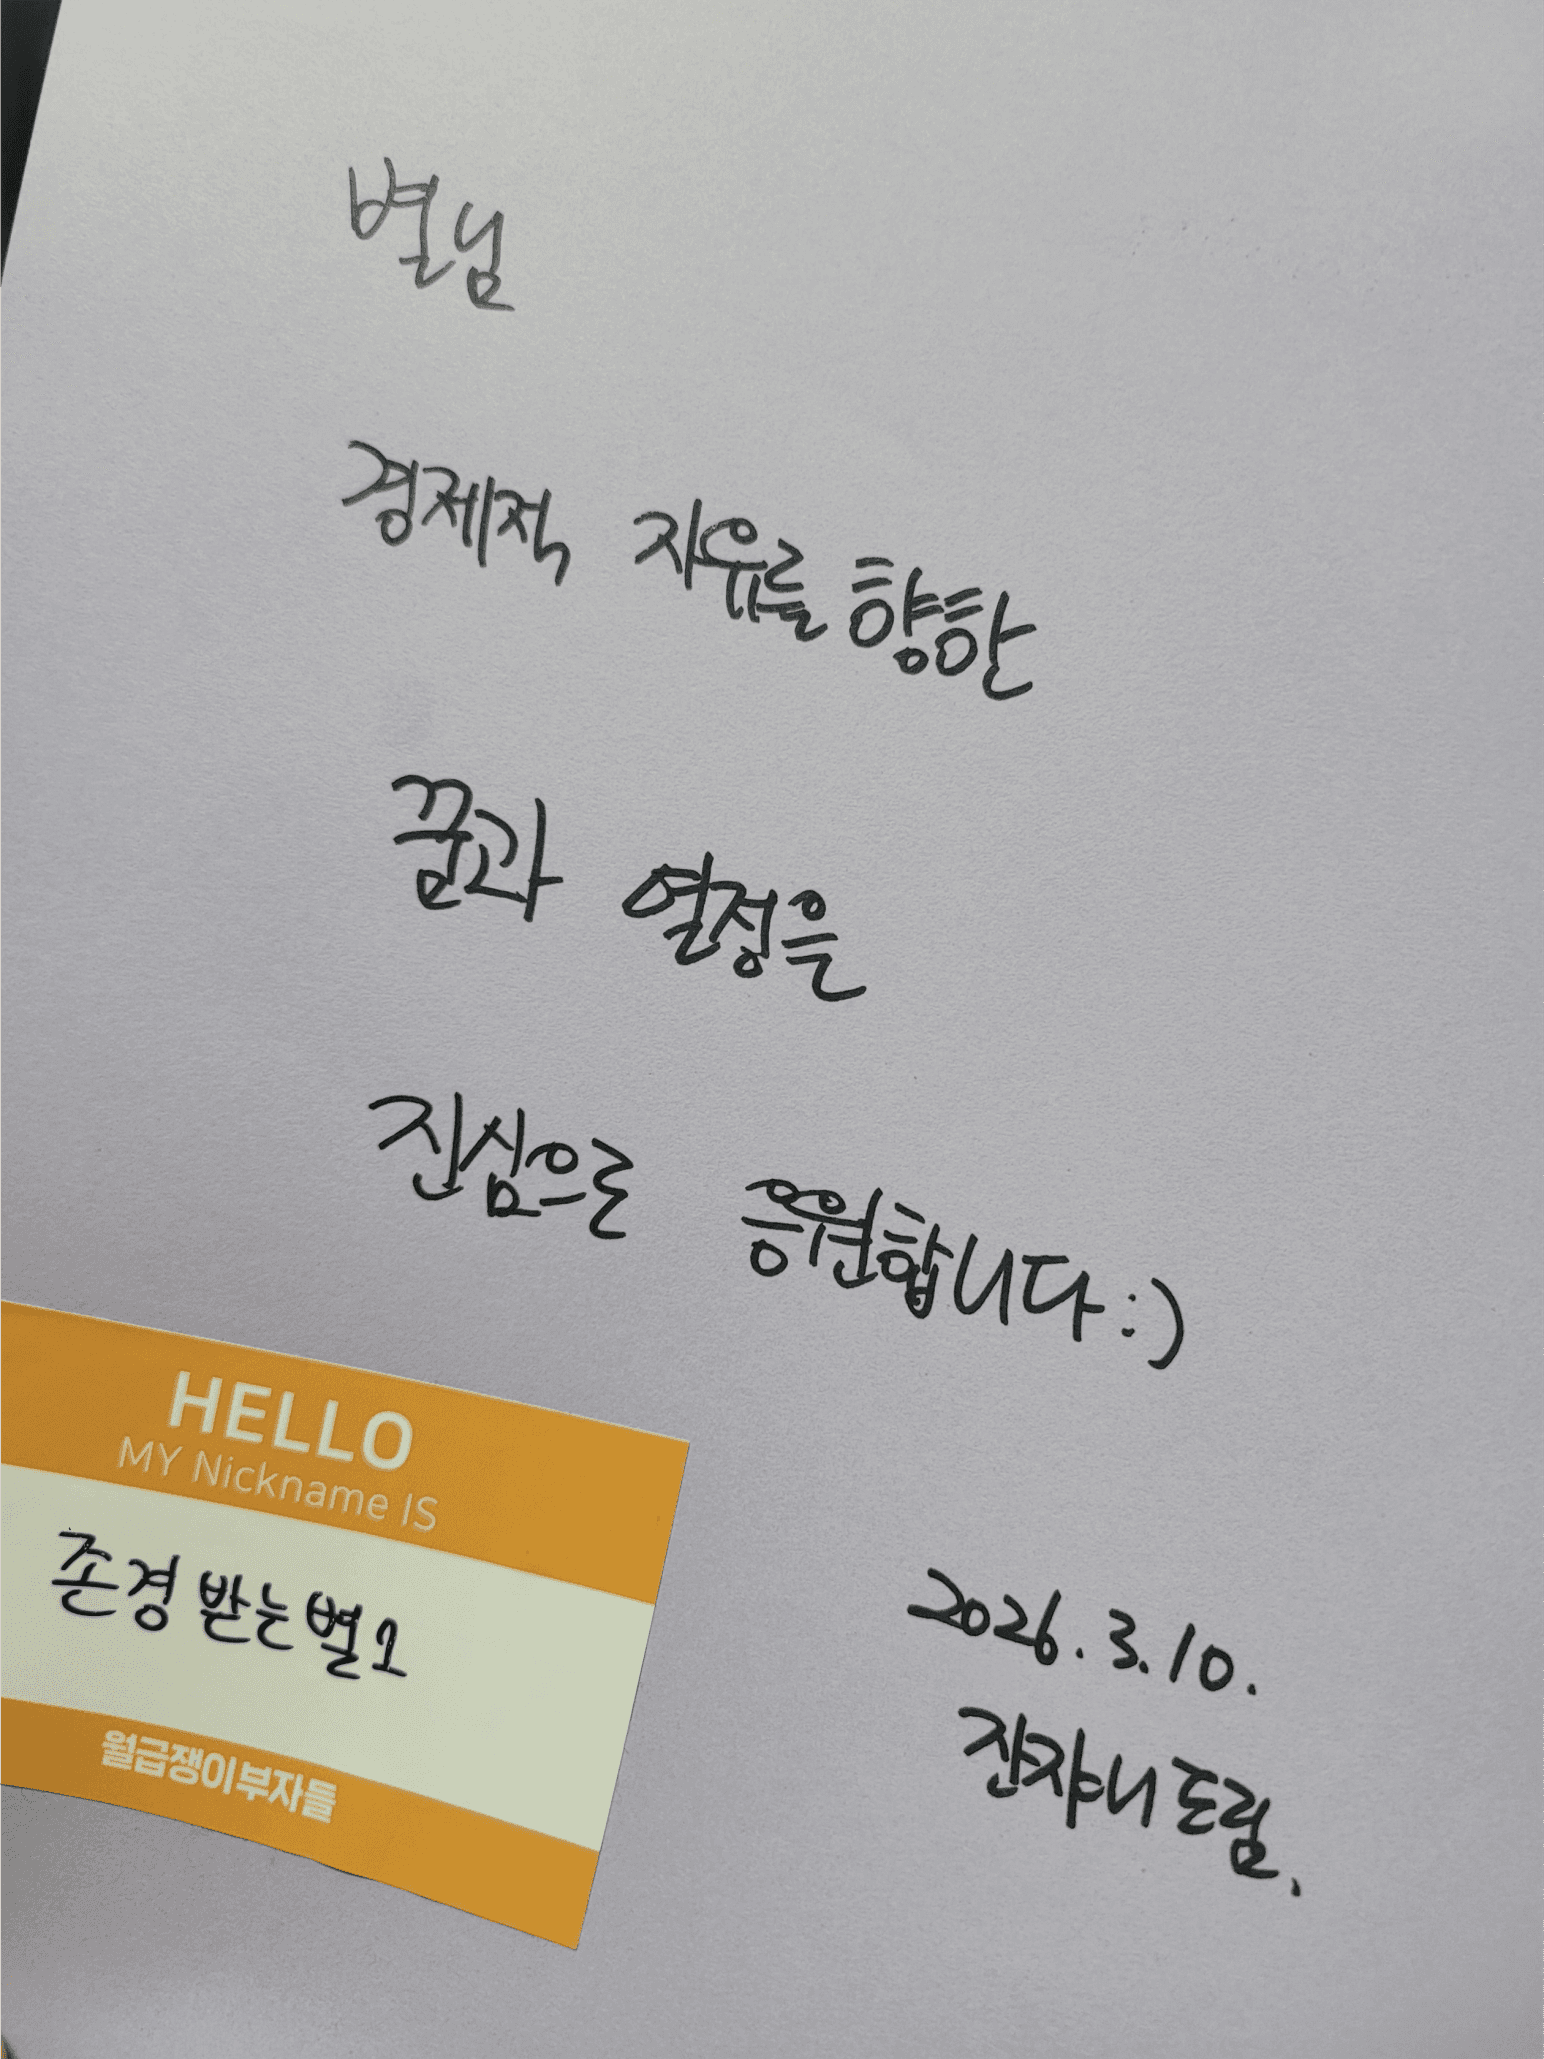 별님
경제적 자유를 향한
꿈과 열정을
진심으로 응원합니다 :)
HELLO
MY Nickname IS
존경 받는 별1
월급쟁이부자들
2026. 3. 10.
잔쟈니 드림.